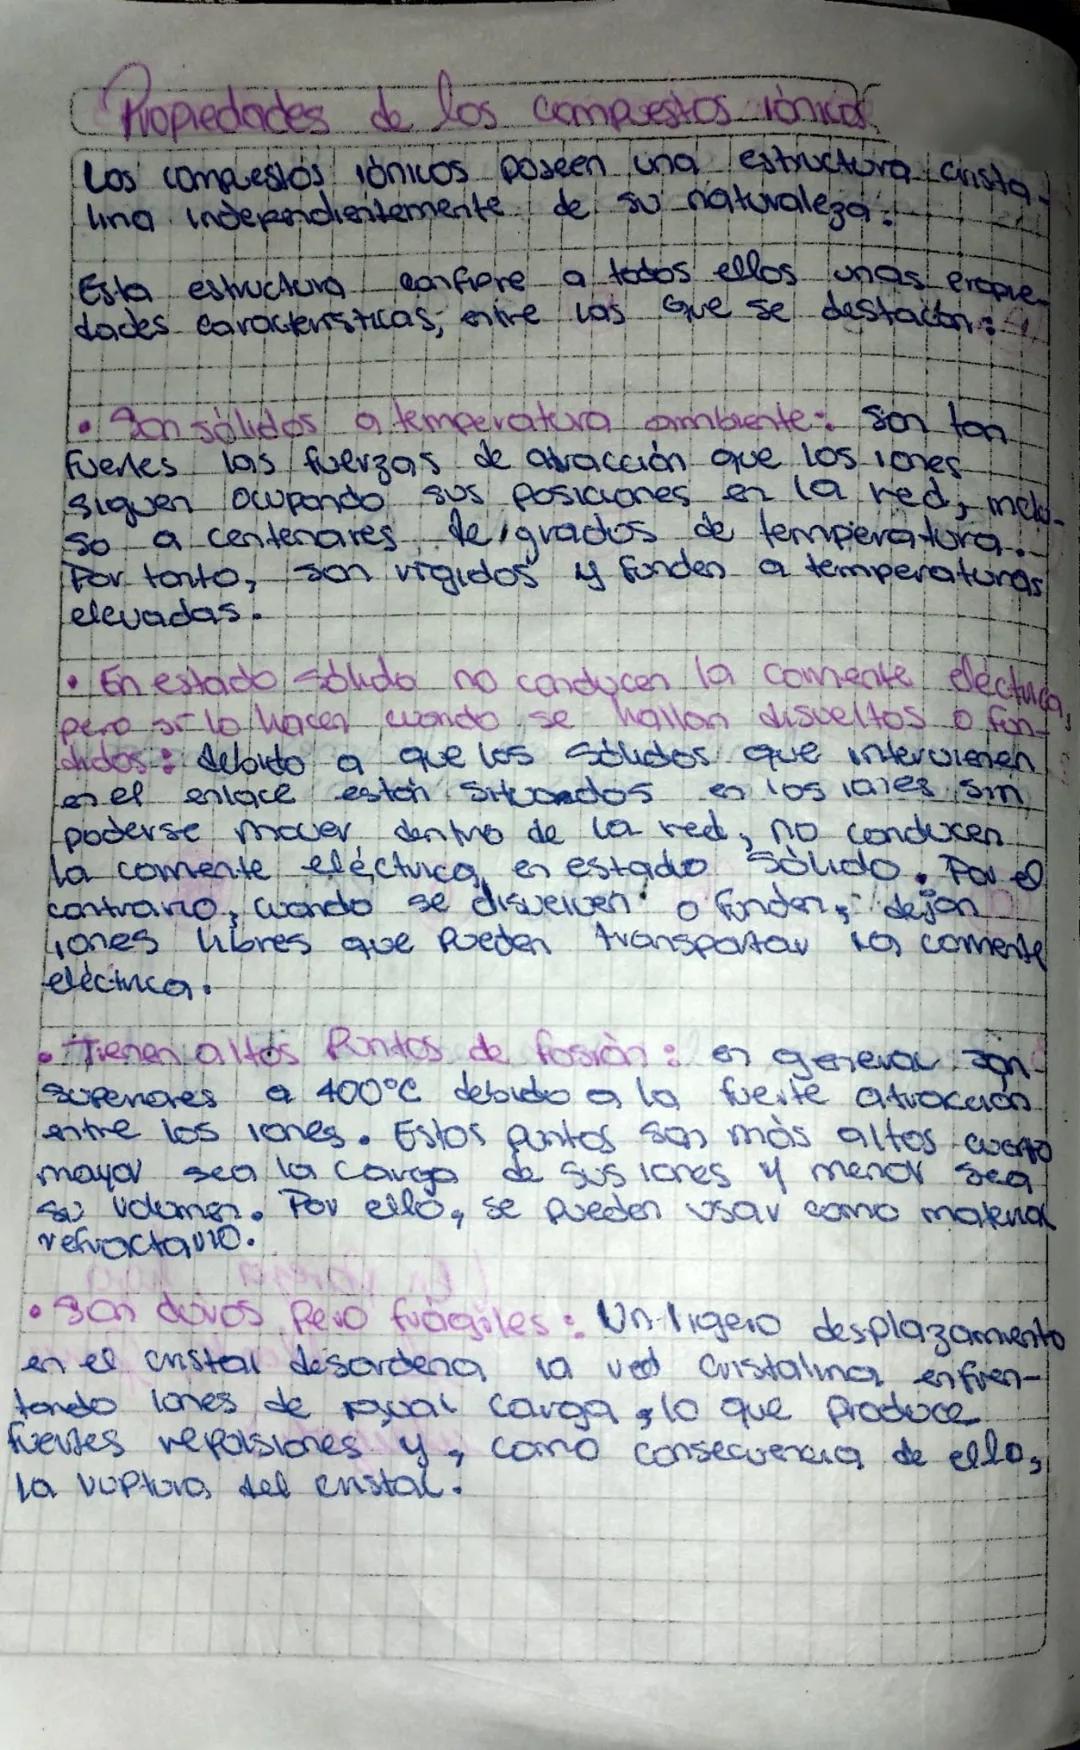 Propiedades de los compuestos iónicos
Los compuestos iónicos poseen una estructura crista-
lina independientemente de su naturaleza.
Esta estructura confiere a todos ellos unas propie-
dades características, entre las que se destacan:
• Son sólidos a temperatura ambiente: Son tan
fuertes las fuerzas de atracción que los iones
siguen ocupando sus posiciones en la red, inclu-
so a centenares de grados de temperatura.
Por tanto, son rígidos y funden a temperaturas
elevadas.
• En estado sólido no conducen la corriente eléctrica,
pero sí lo hacen cuando se hallan disueltos o fun-
didos: debido a que los sólidos que intervienen
en el enlace están situados en los iones sin
poderse mover dentro de la red, no conducen
la corriente eléctrica en estado sólido. Por el
contrario, cuando se disuelven o funden, dejan
iones libres que pueden transportar la corriente
eléctrica.
• Tienen altos puntos de fusión: en general son
superiores a 400°C debido a la fuerte atracción
entre los iones. Estos puntos son más altos cuanto
mayor sea la carga de sus iones y menor sea
su volumen. Por ello, se pueden usar como material
refractario.
• Son duros pero frágiles: Un ligero desplazamiento
en el cristal desordena la red cristalina enfren-
tando iones de igual carga, lo que produce
fuertes repulsiones y, como consecuencia de ello,
la ruptura del cristal.